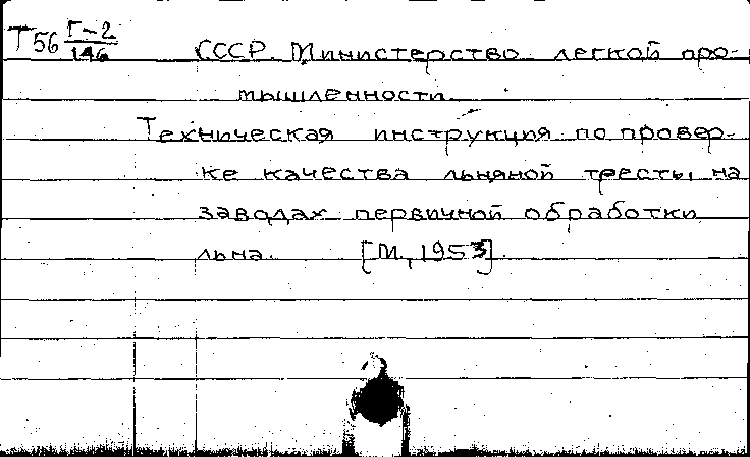 Т56 Г-2/146
СССР. Министерство легкой про-
мышленности.
Техническая инструкция по провер-
ке качества льняной тресты на
заводах первичной обработки
льна. [М., 1953].